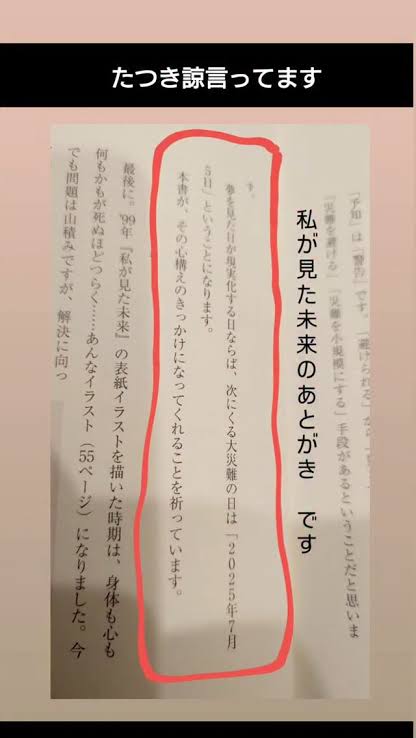 たつき諒言ってます
「予知」は「警告」です。「避けられる」から
「災難を避ける」「災難を小規模にする」手段があるということだと思いま
私が見た未来のあとがき　です
す。
夢を見た日が現実化する日ならば、次にくる大災難の日は「2025年7月
5日」ということになります。
本書が、その心構えのきっかけになってくれることを祈っています。
最後に。'99年『私が見た未来』の表紙イラストを描いた時期は、身体も心も
何もかもが死ぬほどつらく……あんなイラスト（55ページ）になりました。今
でも問題は山積みですが、解決に向っ